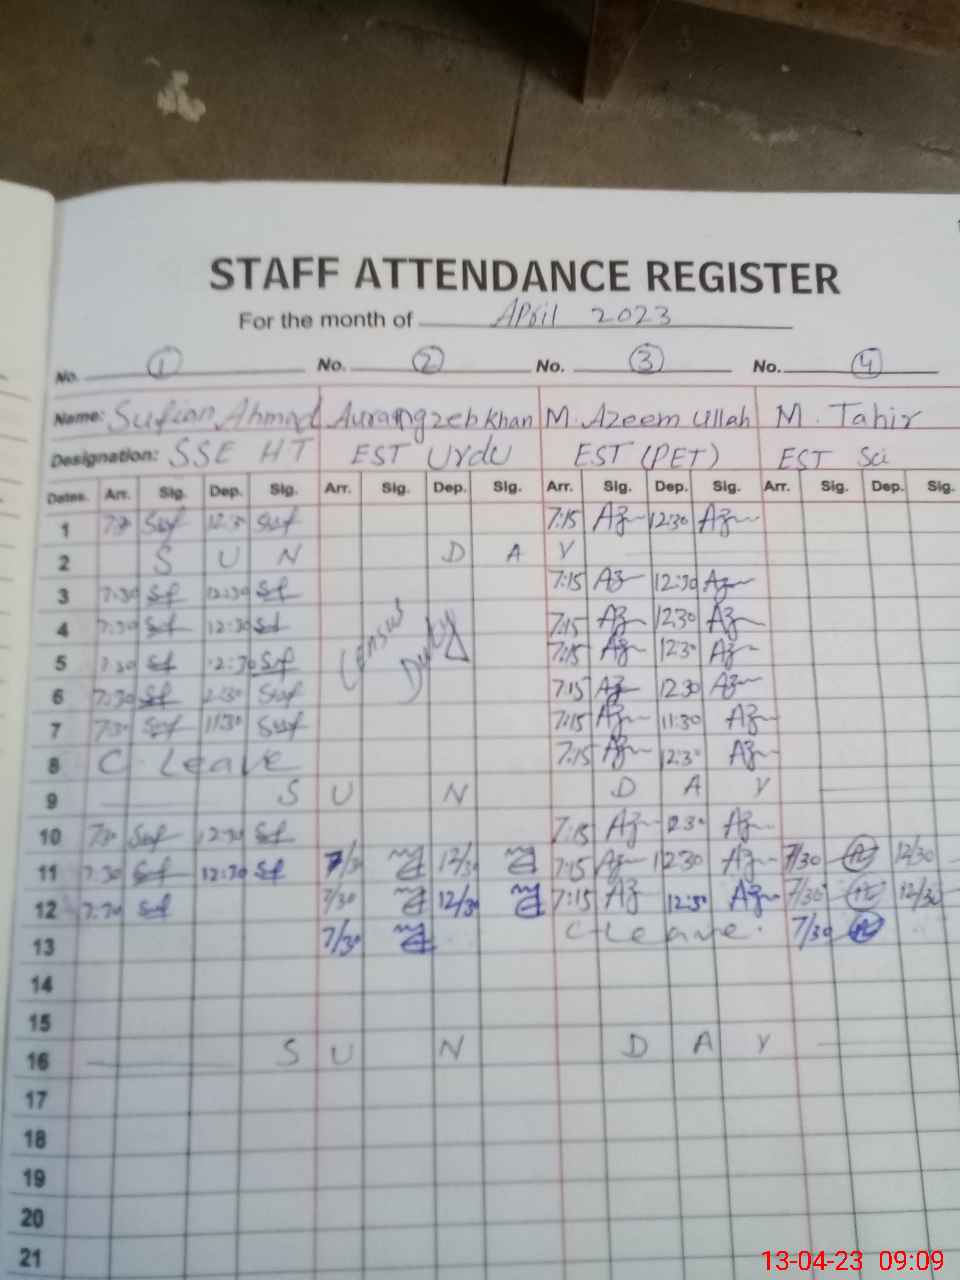 STAFF ATTENDANCE REGISTER
For the month of April 2023
No. 1 No. 2 No. 3 No. 4
Name: Sufian Ahmad Aurangzeb Khan M. Azeem Ullah M. Tahir
Designation: SSE HT EST Urdu EST (PET) EST Sci
Dates. Arr. Sig. Dep. Sig. Arr. Sig. Dep. Sig. Arr. Sig. Dep. Sig. Arr. Sig. Dep. Sig.
1 Suf Suf 7:15 Az 12:30 Az
2 S U N D A Y
3 7:30 Sf 12:30 Sf 7:15 Az 12:30 Az
4 7:30 Sf 12:30 Sf Census Duty 7:15 Az 12:30 Az
5 7:30 Sf 12:30 Suf 7:15 Az 12:30 Az
6 7:30 Suf 12:30 Suf 7:15 Az 12:30 Az
7 7:30 Suf 11:30 Suf 7:15 Az 11:30 Az
8 C. Leave 7:15 Az 12:30 Az
9 S U N D A Y
10 7:30 Suf 12:30 Sf 7:15 Az 12:30 Az
11 7:30 Sf 12:30 Sf 7/30 12/30 7:15 Az 12:30 Az 7/30 12/30
12 7:30 Suf 7/30 12/30 7:15 Az 12:30 Az 7/30 12/30
13 7/30 C leave. 7/30
14
15
16 S U N D A Y
17
18
19
20
21
13-04-23 09:09